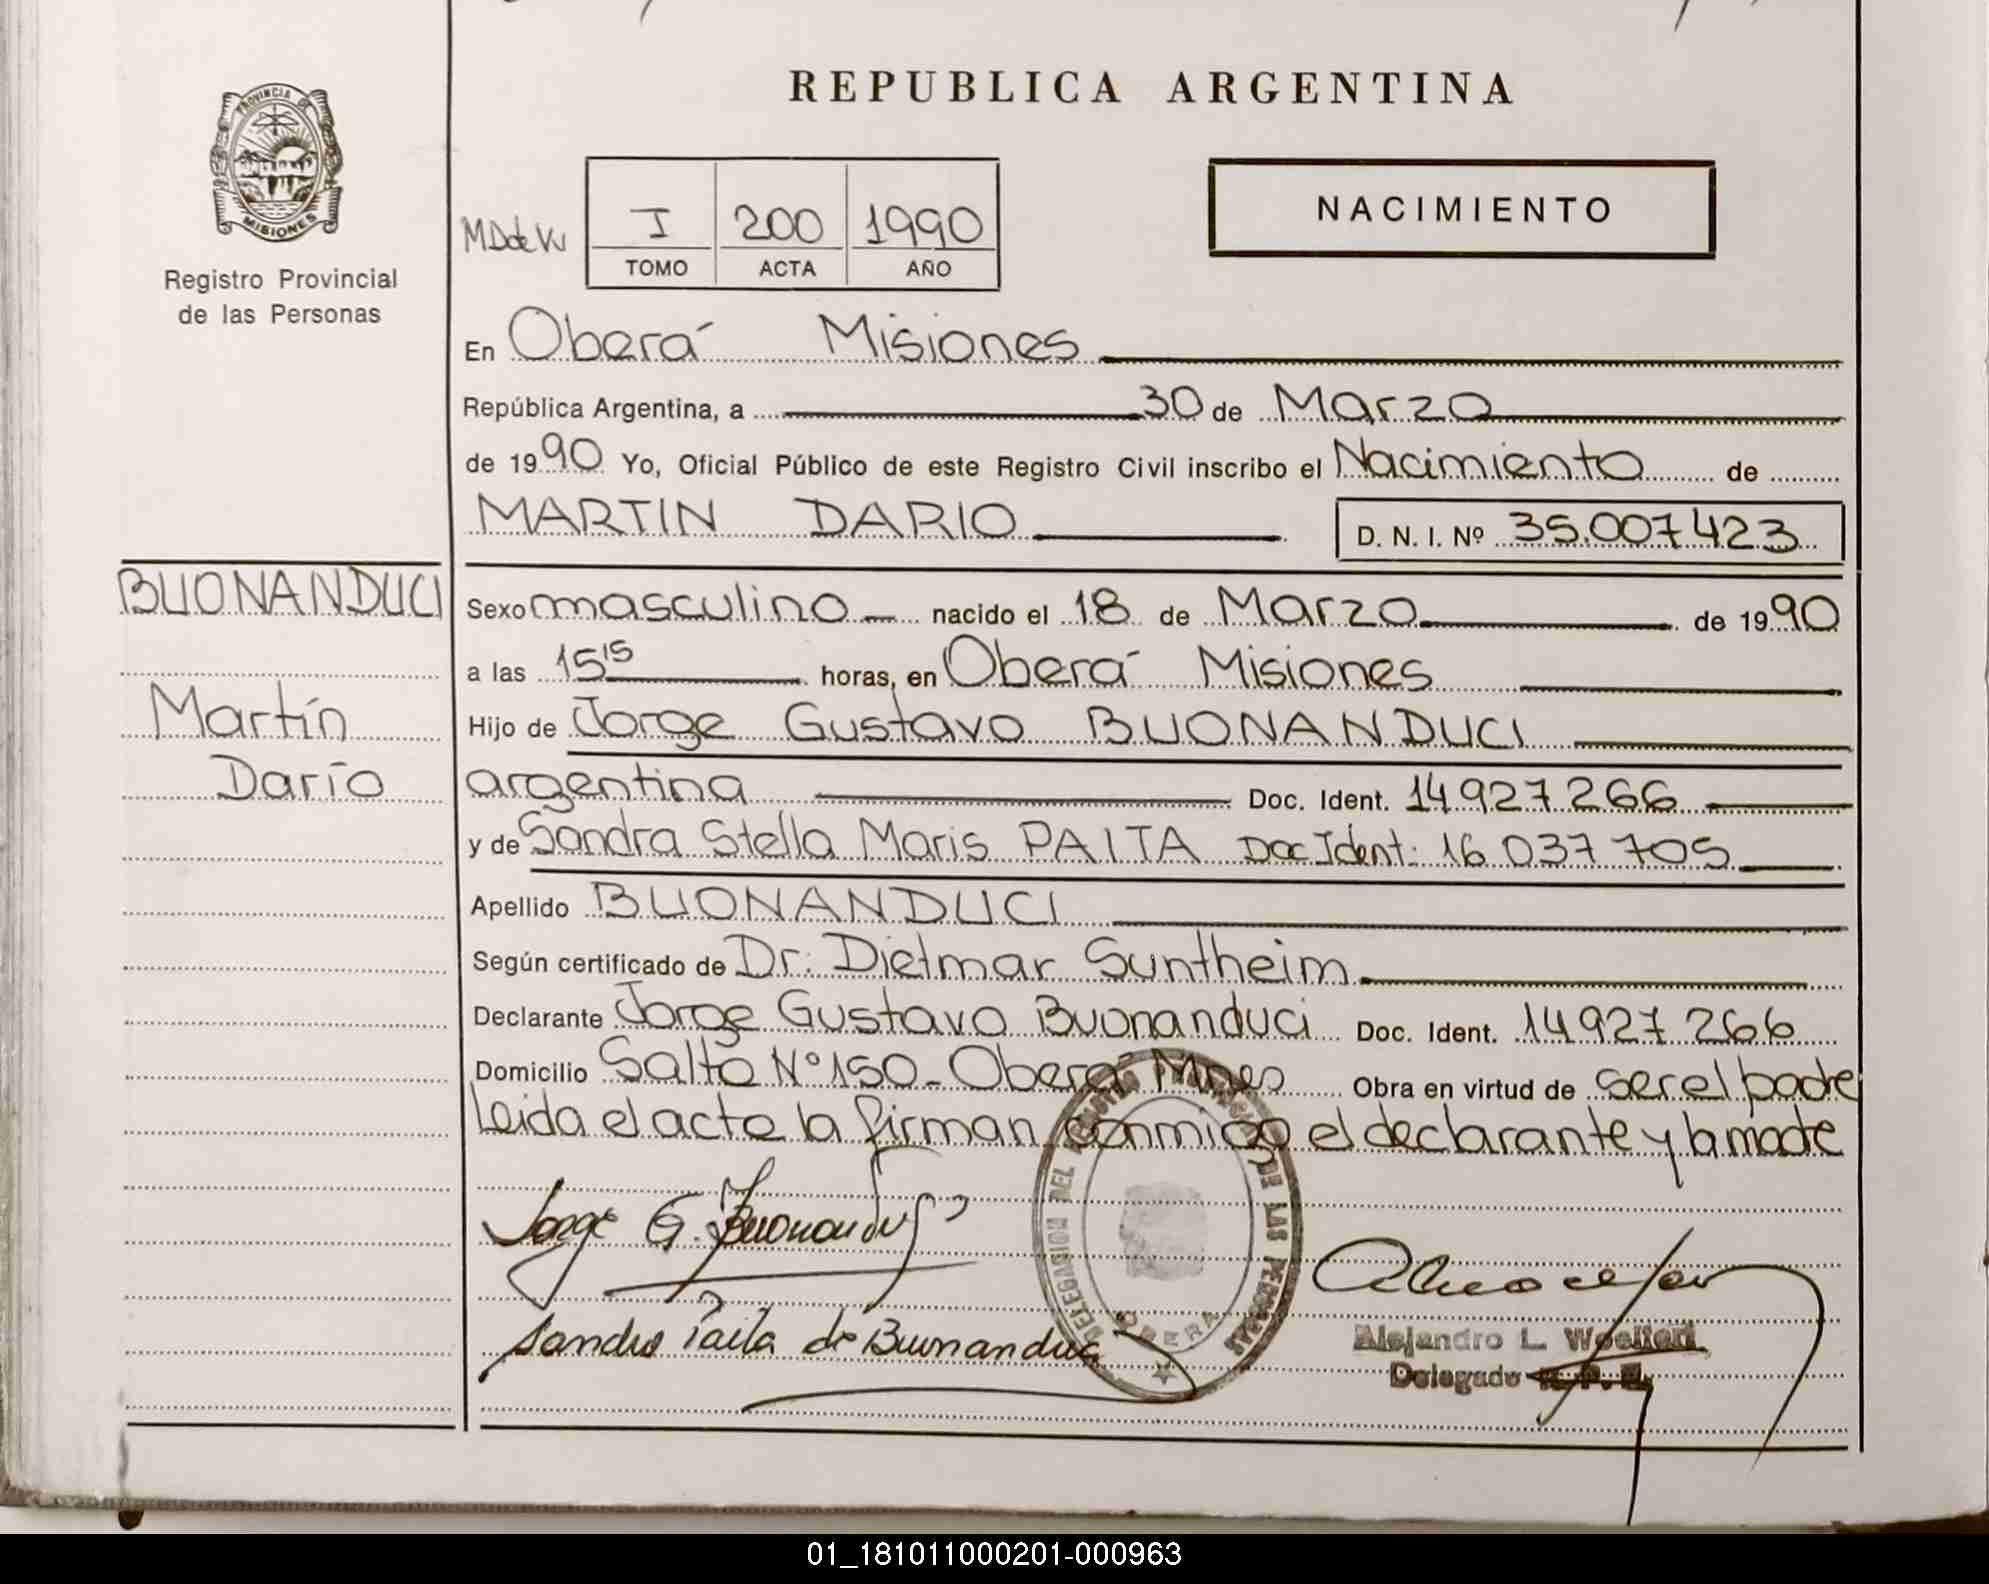 PROVINCIA DE
MISIONES
Registro Provincial
de las Personas
REPUBLICA ARGENTINA
NACIMIENTO
I 200 1990
TOMO ACTA AÑO
En Oberá Misiones
República Argentina, a 30 de Marzo
de 1990 Yo, Oficial Público de este Registro Civil inscribo el Nacimiento de
MARTIN DARIO D. N. I. Nº 35.007423
BUONANDUCI
Martín
Darío
Sexo masculino nacido el 18 de Marzo de 1990
a las 15 15 horas, en Oberá Misiones
Hijo de Jorge Gustavo BUONANDUCI
argentina Doc. Ident. 14927266
y de Sandra Stella Maris PAITA Doc Ident: 16 037 705
Apellido BUONANDUCI
Según certificado de Dr. Dietmar Suntheim
Declarante Jorge Gustavo Buonanduci Doc. Ident. 14927266
Domicilio Salto Nº 150 - Oberá Mnes Obra en virtud de ser el padre
Leida el acta la firman conmigo el declarante y la madre
Jorge G. Buonanduci
Sandra Paita de Buonanduci
DELEGACION DEL REGISTRO PROVINCIAL DE LAS PERSONAS
OBERA
Alejandro L.
Delegado
01_181011000201-000963